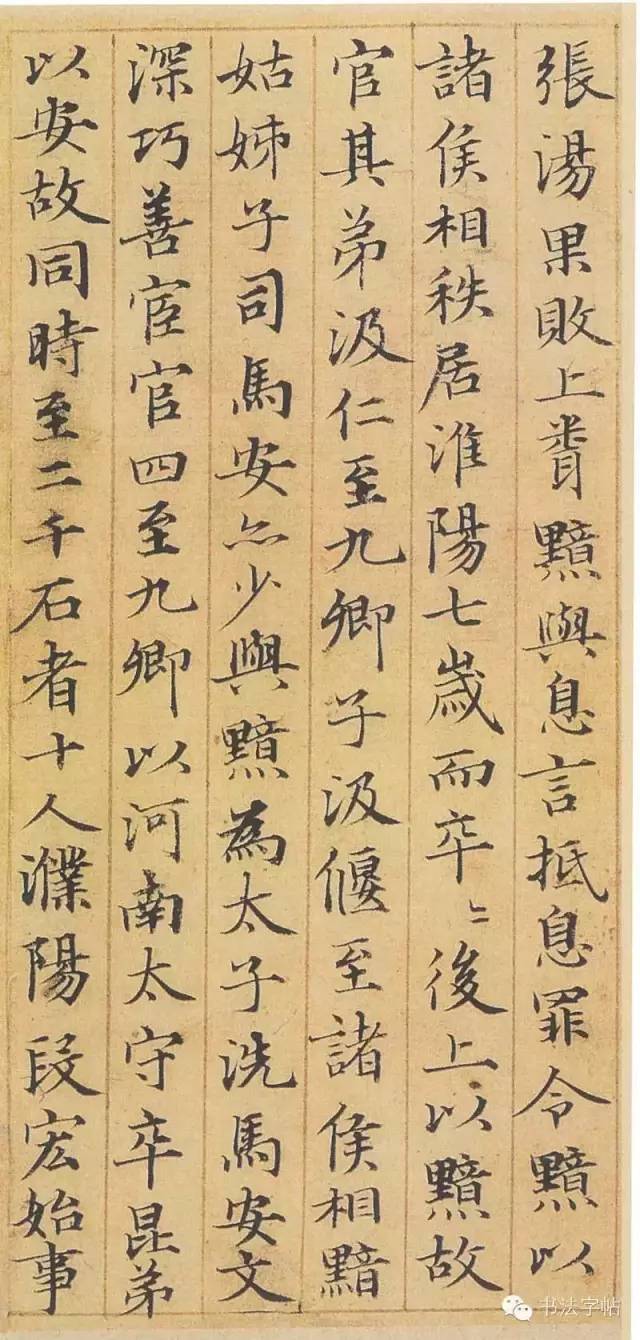 張湯果敗上聞黯與息言抵息罪令黯以
諸侯相秩居淮陽七歲而卒〻後上以黯故
官其弟汲仁至九卿子汲偃至諸侯相黯
姑姊子司馬安亦少與黯為太子洗馬安文
深巧善宦官四至九卿以河南太守卒昆弟
以安故同時至二千石者十人濮陽段宏始事
书法字帖